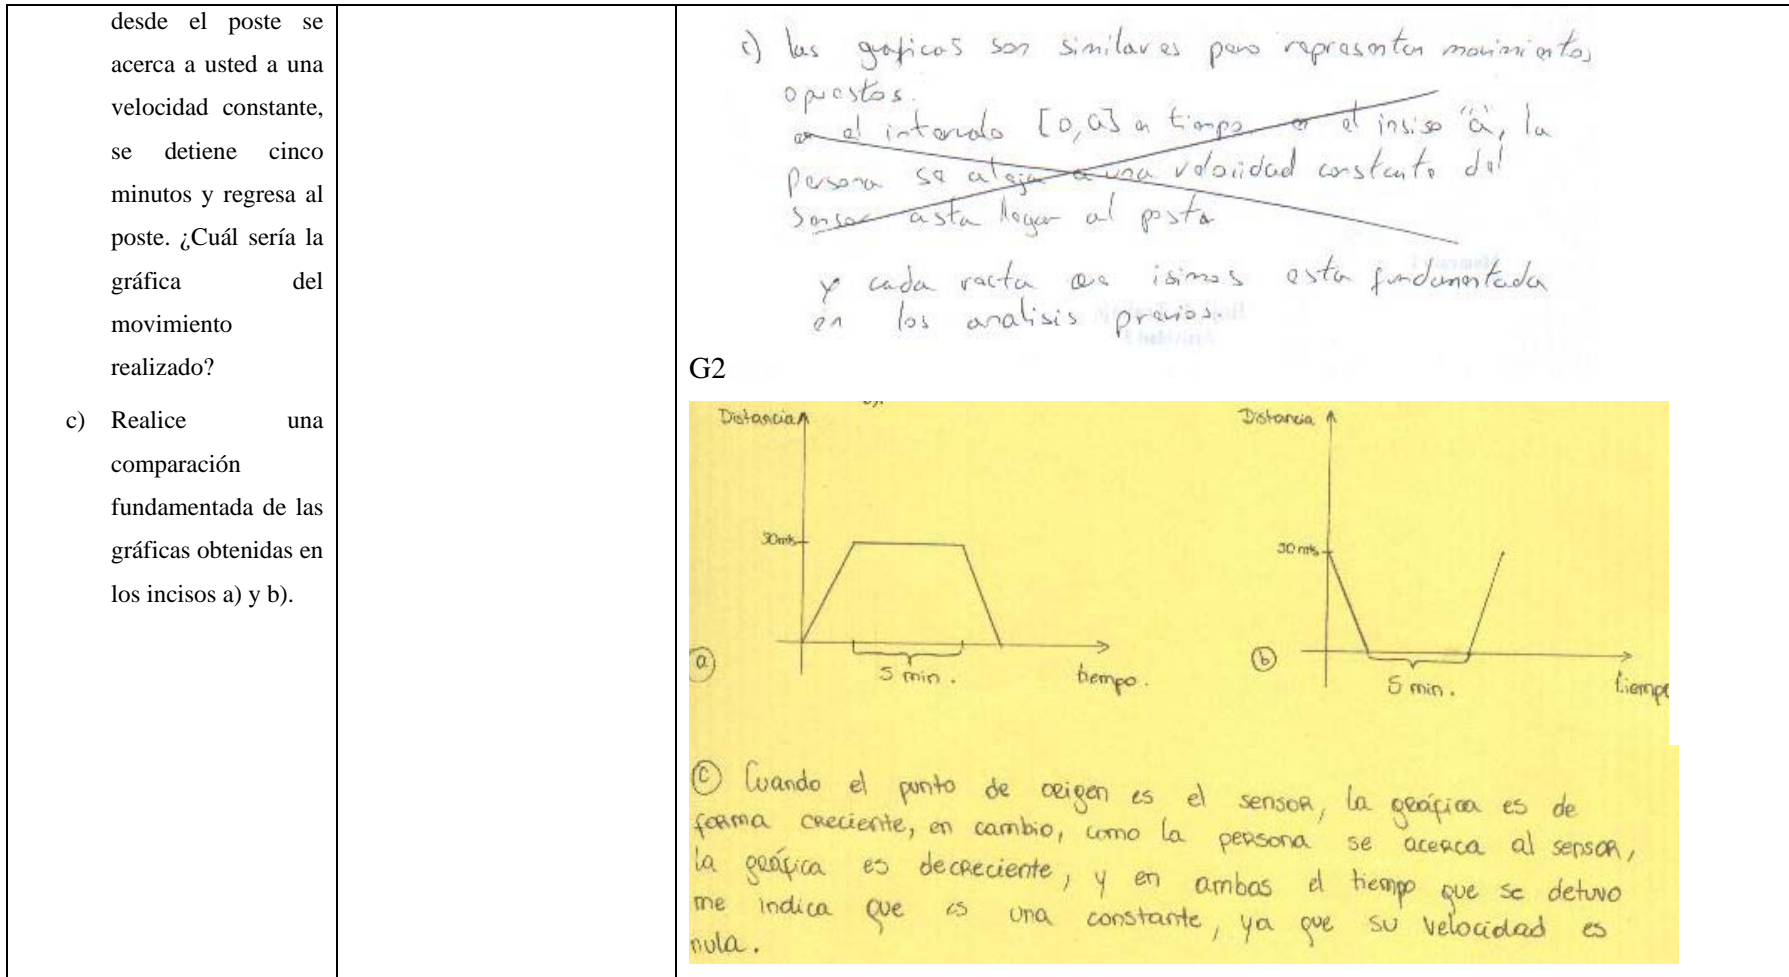 desde el poste se
acerca a usted a una
velocidad constante,
se detiene cinco
minutos y regresa al
poste. ¿Cuál sería la
gráfica del
movimiento
realizado?
c) Realice una
comparación
fundamentada de las
gráficas obtenidas en
los incisos a) y b).
c) las graficas son similares pero representan movimientos
opuestos.
en el intervalo [0,a] en tiempo en el insiso "a", la
persona se aleja a una velocidad constante del
sensor asta llegar al poste
y cada recta que isimos esta fundamentada
en los analisis previos.
G2
Distancia
30 mts
5 min.
tiempo.
a
Distancia
30 mts
5 min.
tiempo
b
c Cuando el punto de origen es el sensor, la gráfica es de
forma creciente, en cambio, como la persona se acerca al sensor,
la gráfica es decreciente, y en ambas el tiempo que se detuvo
me indica que es una constante, ya que su velocidad es
nula.